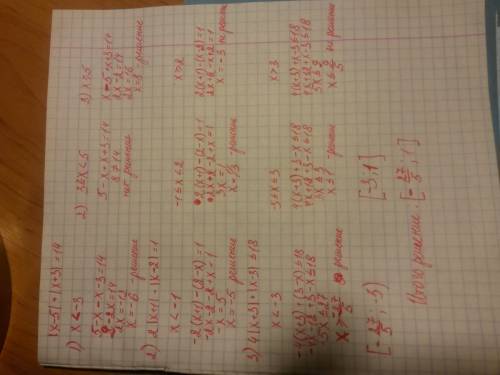 |x-5|+|x+3|=14
1) x<-3
5-x-x-3=14
2-2x=14
2x=-12
x=-6 - решение
2) 3≤x<5
5-x+x+3=14
8≠14
нет решений
3) x≥5
x-5+x+3=14
2x-2=14
2x=16
x=8 - решение
2) 2|x+1|-|x-2|=1
x<-1
-2(x+1)-(2-x)=1
-2x-2-2+x=1
-x=5
x=-5 решение
-1≤x≤2
2(x+1)-(2-x)=1
2x+2-2+x=1
3x=1
x=1/3 - решение
x>2
2(x+1)-(x-2)=1
2x+2-x+2=1
x=-3 не решение
3) 4|x+3|+|x-3|≤18
x<-3
-4(x+3)+(3-x)≤18
-4x-12+3-x≤18
-5x≤27
x≥-27/5 решение
-3≤x≤3
4(x+3)+3-x≤18
4x+12+3-x≤18
3x≤3
x≤1 - решение
x>3
4(x+3)+x-3≤18
4x+12+x-3≤18
5x≤9
x≤9/5 не решение
[-27/5; -3)
[-3; 1]
Итого решение: [-27/5; 1]